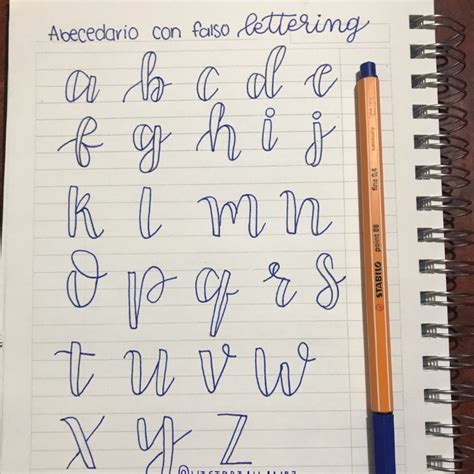 Abecedario con falso lettering
a b c d e
f g h i j
k l m n
o p q r s
t u v w
x y z
STABILO point 88 fine 0,4